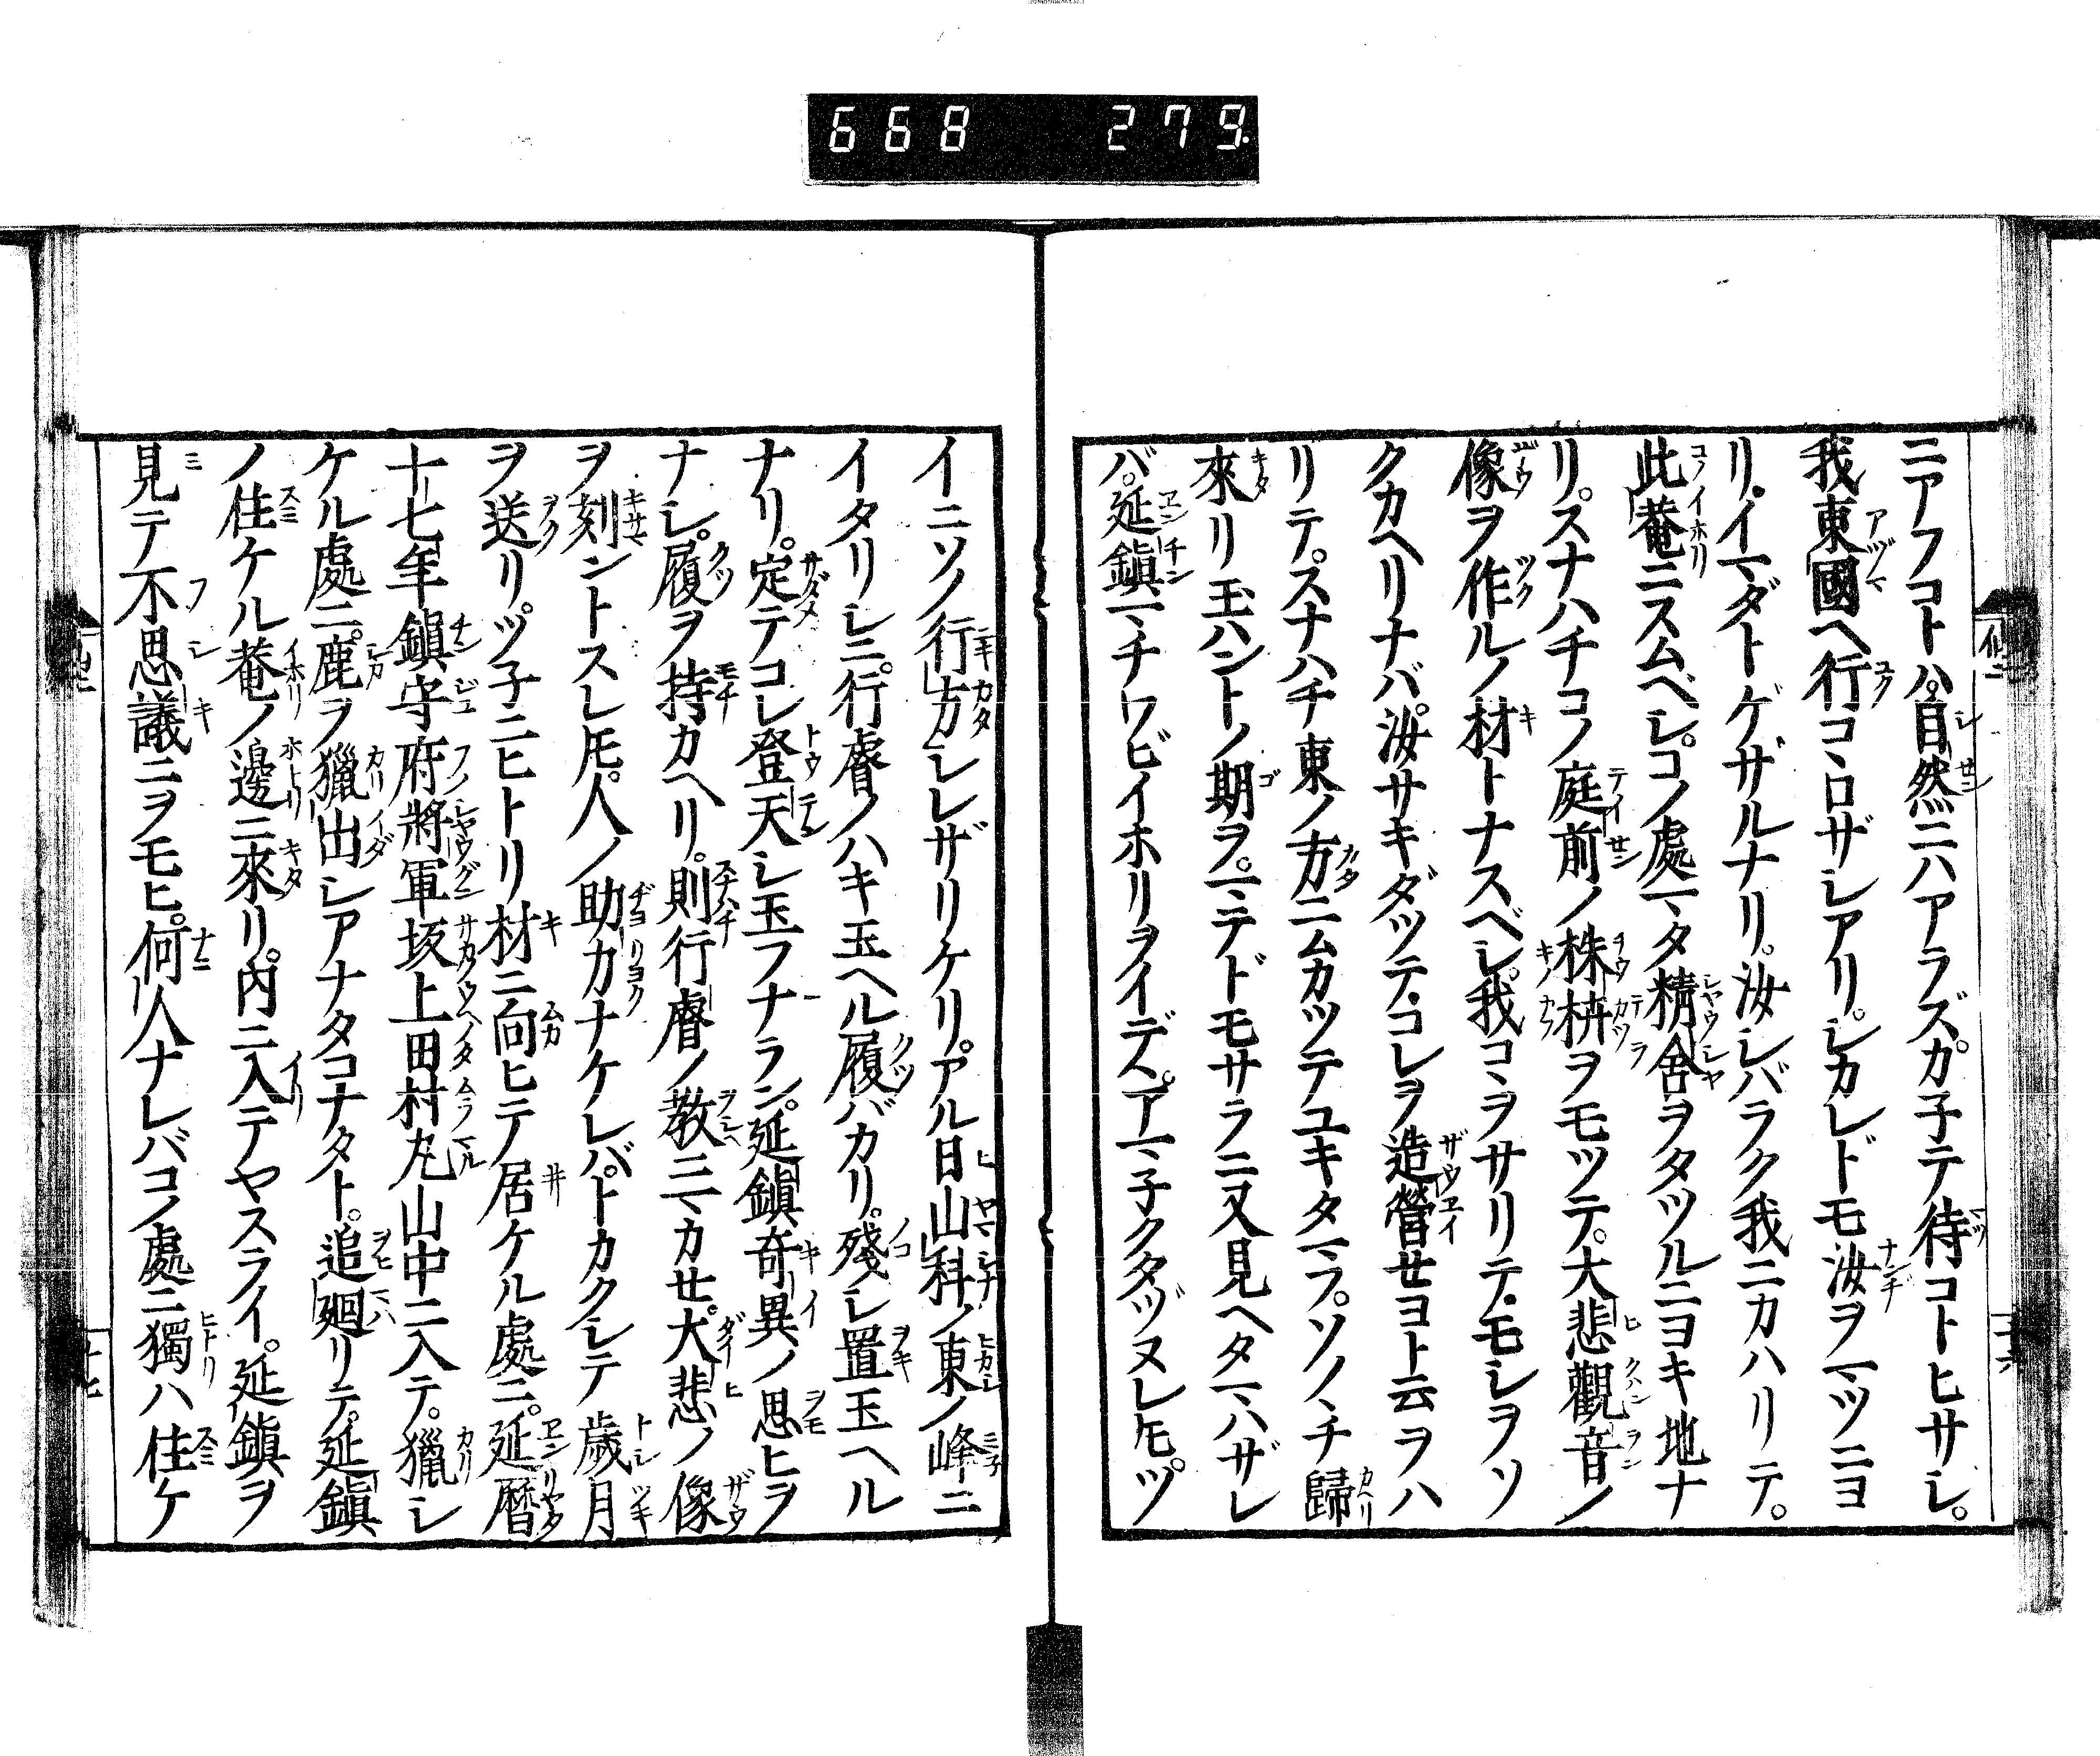 668 279
ニアフコトハ。自然ニハアラズ。カ子テ待コトヒサシ。
我東國ヘ行コヽロザシアリ。シカレドモ汝ヲマツニヨ
リ。イマダトゲザルナリ。汝シバラク我ニカハリテ。
此菴ニスムベシ。コノ處マタ精舎ヲタツルニヨキ地ナ
リ。スナハチコノ庭前ノ株枿ヲモツテ。大悲觀音ノ
像ヲ作ルノ材トナスベシ。我コヽヲサリテ。モシヲソ
クカヘリナバ。汝サキダツテ。コレヲ造營せヨト云ヲハ
リテ。スナハチ東ノ方ニムカツテユキタマフ。ソノヽチ歸
來リ玉ハントノ期ヲ。マテドモサラニ又見ヘタマハザレ
バ。延鎭マチワビイホリヲイデス。アマ子クタヅヌレ𪜈。ツ
イニソノ行方シレザリケリ。アル日山科ノ東ノ峰ニ
イタリシニ。行睿ノハキ玉ヘル履バカリ。殘シ置玉ヘル
ナリ。定テコレ登天シ玉フナラン。延鎭奇異ノ思ヒヲ
ナシ。履ヲ持カヘリ。則行睿ノ教ニマカせ。大悲ノ像
ヲ刻ントスレ𪜈。人ノ助カナケレバ。トカクシテ歳月
ヲ送リ。ツ子ニヒトリ材ニ向ヒテ居ケル處ニ。延暦
十七年鎭守府將軍坂上田村丸山中ニ入テ。獵シ
ケル處ニ。鹿ヲ獵出シアナタコナタト。追廻リテ。延鎭
ノ住ケル菴ノ邊ニ來リ。内ニ入テヤスライ。延鎭ヲ
見テ不思議ニヲモヒ。何人ナレバコノ處ニ獨ハ住ケ